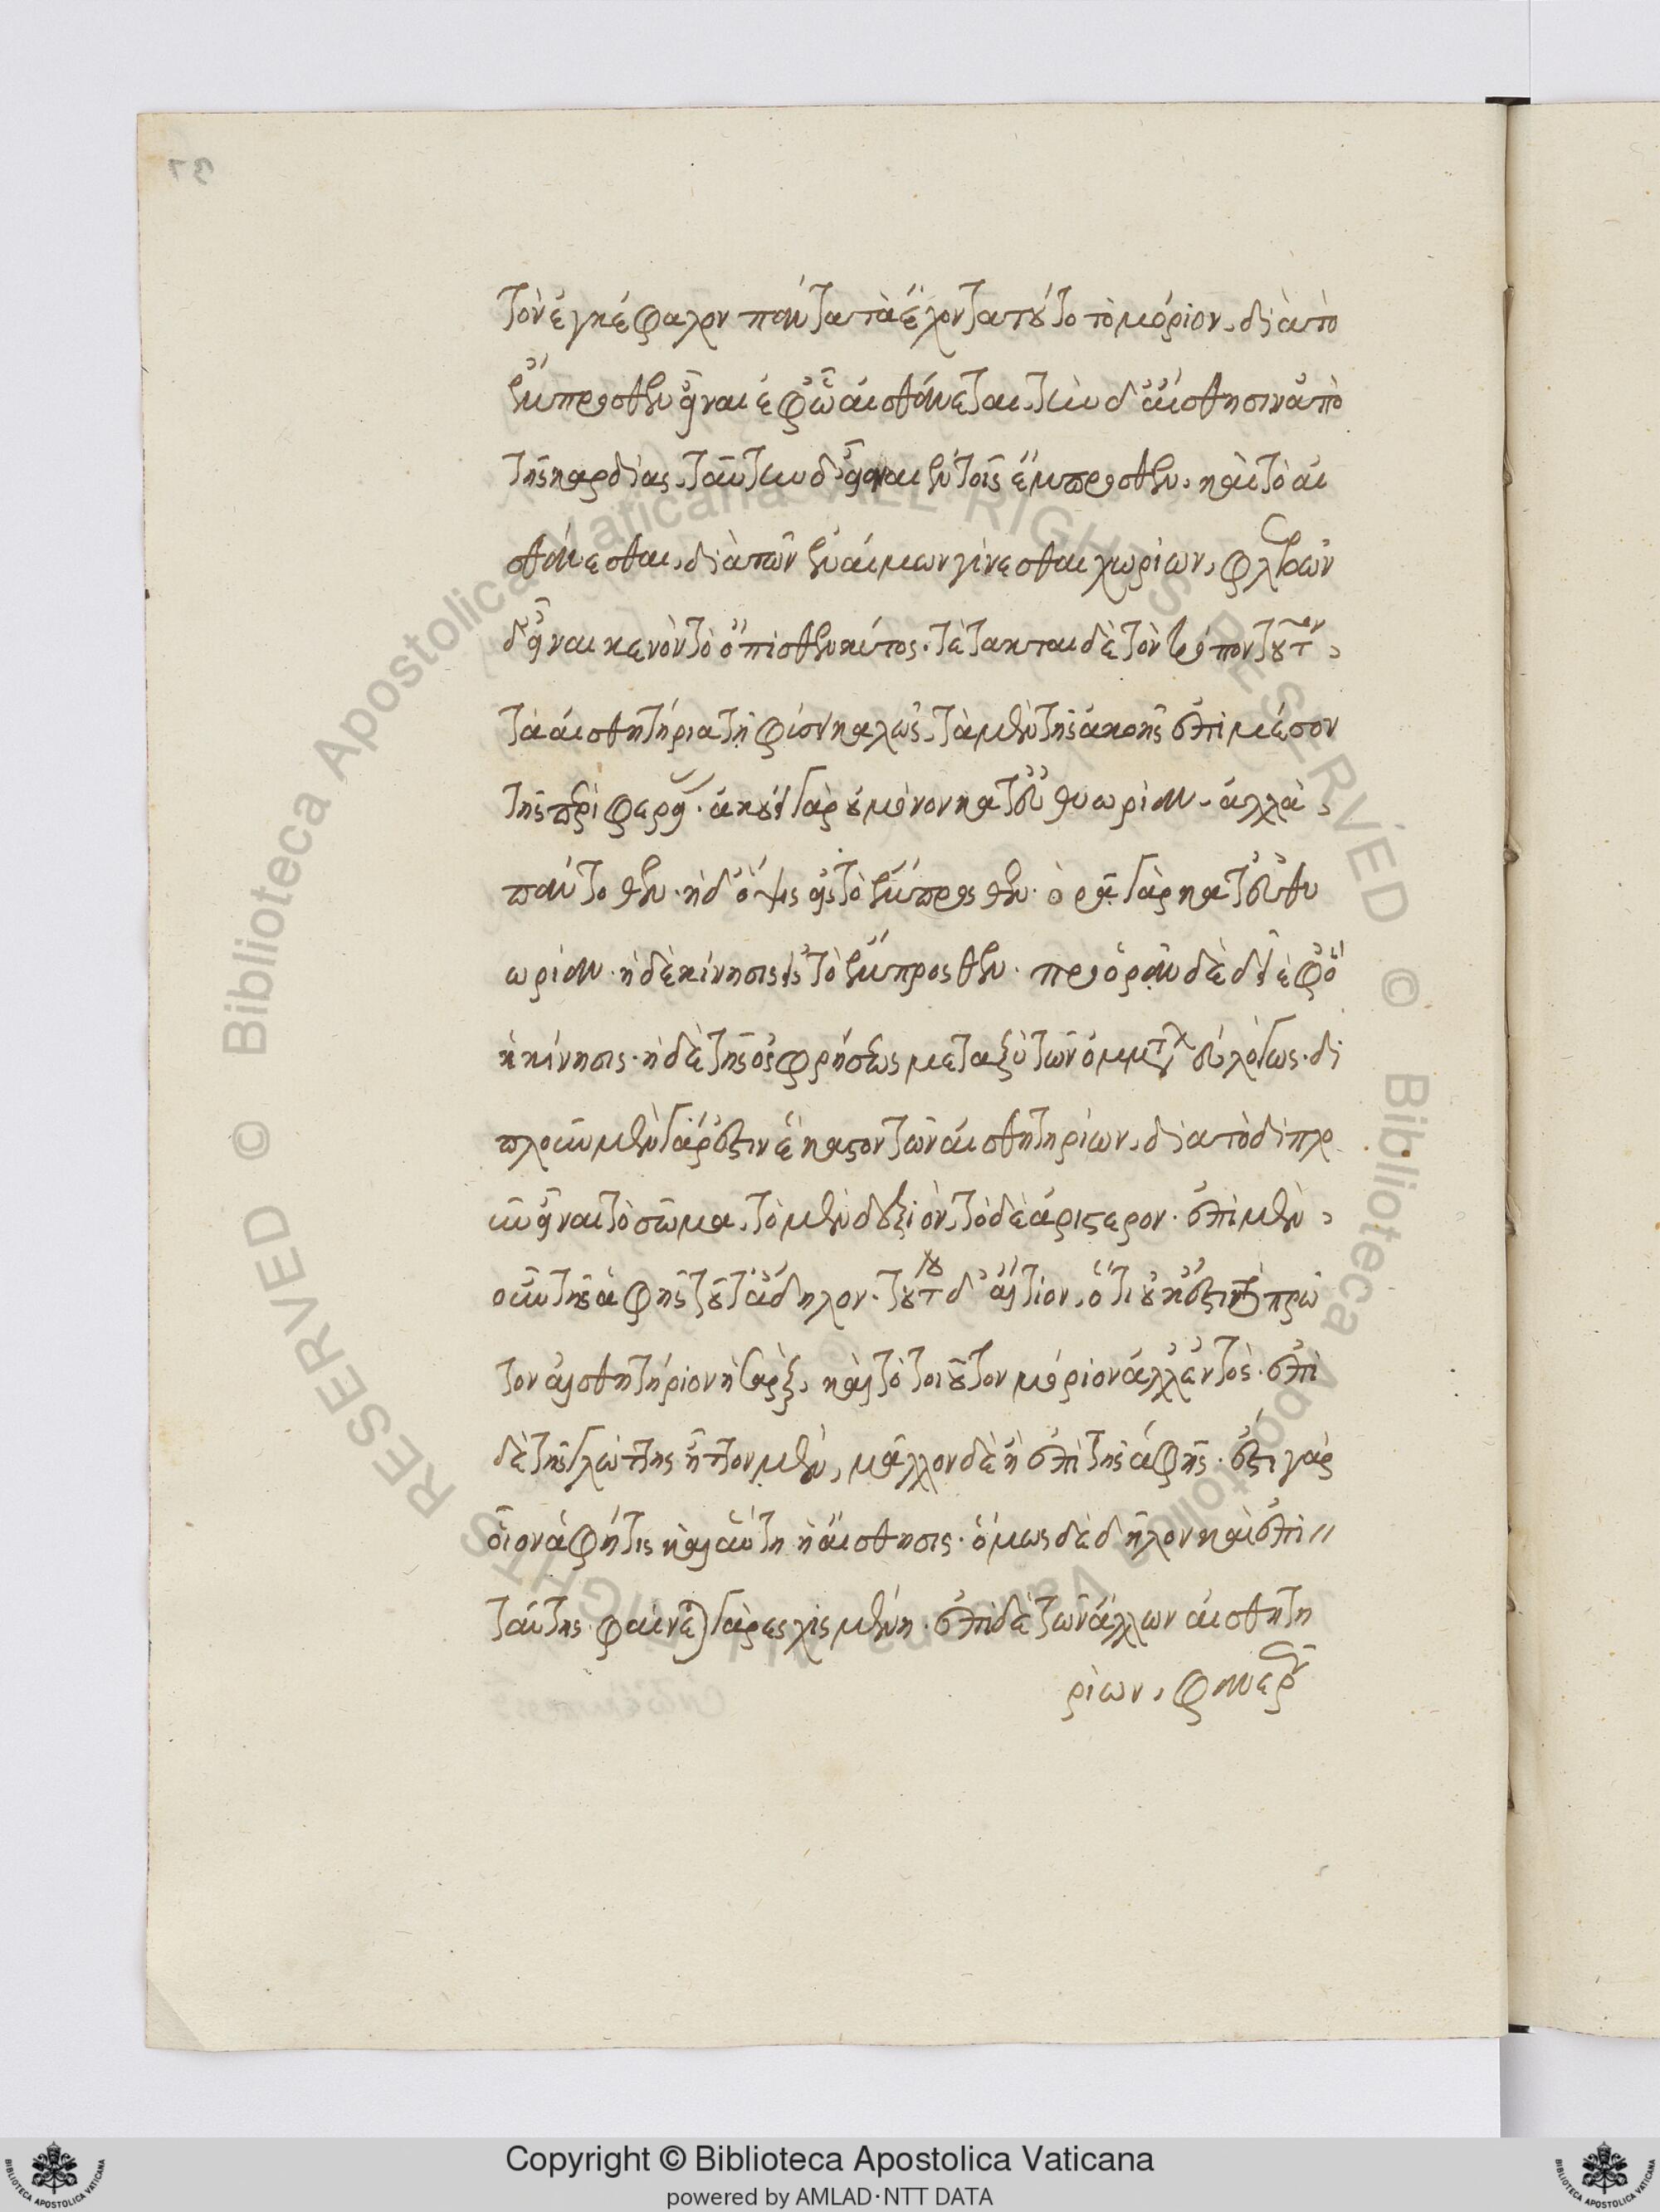 τὸν ἐγκέφαλον πάντα τὰ ἔχοντα τοῦτο τὸ μόριον, διὰ τὸ
ἔμπροσθεν εἶναι ἐφ' ὧ αἰσθάνεται, τὴν δ' αἴσθησιν ἀπὸ
τῆς καρδίας, ταύτην δ' εἶναι ἐν τοῖς ἔμπροσθεν, καὶ τὸ αἰ
σθάνεσθαι, διὰ τῶν ἐναίμων γίνεσθαι χωρίων, φλεβῶν
δ' εἶναι κενὸν τὸ ὄπισθεν κύτος. τέτακται δὲ τὸν τρόπον τοῦτον,
τὰ αἰσθητήρια τῇ φύσει καλῶς, τὰ μὲν τῆς ἀκοῆς ἐπὶ μέσον
τῆς περιφερείας. ἀκούει γὰρ οὐ μόνον κατ' εὐθυωρίαν, ἀλλὰ,
πάντοθεν. ἡ δ' ὄψις εἰς τὸ ἔμπροσθεν. ὁρᾷ γὰρ κατ' εὐθυ
ωρίαν. ἡ δὲ κίνησις εἰς τὸ ἔμπροσθεν. προορᾶν δὲ δεῖ ἐφ' ὃ
ἡ κίνησις. ἡ δὲ τῆς ὀσφρήσεως μεταξὺ τῶν ὀμμάτων εὐλόγως. δι
πλοῦν μὲν γάρ ἐστιν ἕκαστον τῶν αἰσθητηρίων, διὰ τὸ διπλο
ῦν εἶναι τὸ σῶμα, τὸ μὲν δεξιὸν, τὸ δὲ ἀριστερον. ἐπὶ μὲν,
οὖν τῆς ἁφῆς τοῦτ' ἄδηλον. τούτου δ' αἴτιον, ὅτι οὐκ ἔστιν τὸ πρῶ
τον αἰσθητήριον ἡ σὰρξ, καὶ τὸ τοιοῦτον μόριον ἀλλ' ἐντὸς. ἐπὶ
δὲ τῆς γλώττης ἧττον μὲν, μᾶλλον δὲ ἢ ἐπὶ τῆς ἁφῆς. ἔστι γὰρ
οἷον ἁφή τις καὶ αὕτη ἡ αἴσθησις. ὅμως δὲ δῆλον καὶ ἐπὶ
ταύτης. φαίνεται γὰρ ἐσχισμένη. ἐπὶ δὲ τῶν ἄλλων αἰσθητη
ρίων, φανερῶ